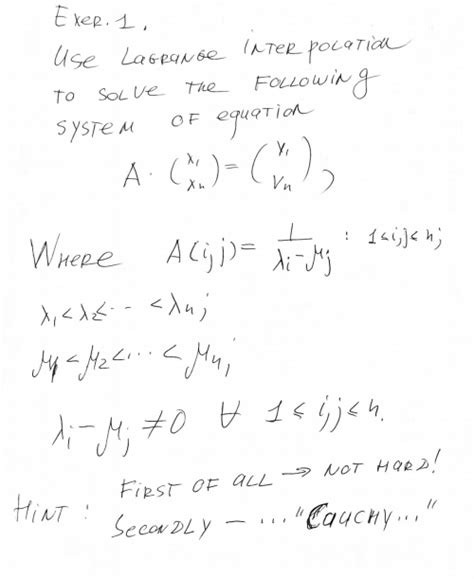 Exer. 1.
Use Lagrange interpolation
to solve the following
system of equation
A · (x₁ xₙ) = (y₁ yₙ),
Where A(i,j) = 1/(λi - μj) : 1≤i,j≤n;
λ₁<λ₂<··· <λn;
μ₁<μ₂<··· < μn;
λi - μj ≠ 0 ∀ 1≤i,j≤n.
Hint : First of all → not hard!
Secondly – ... "Cauchy..."